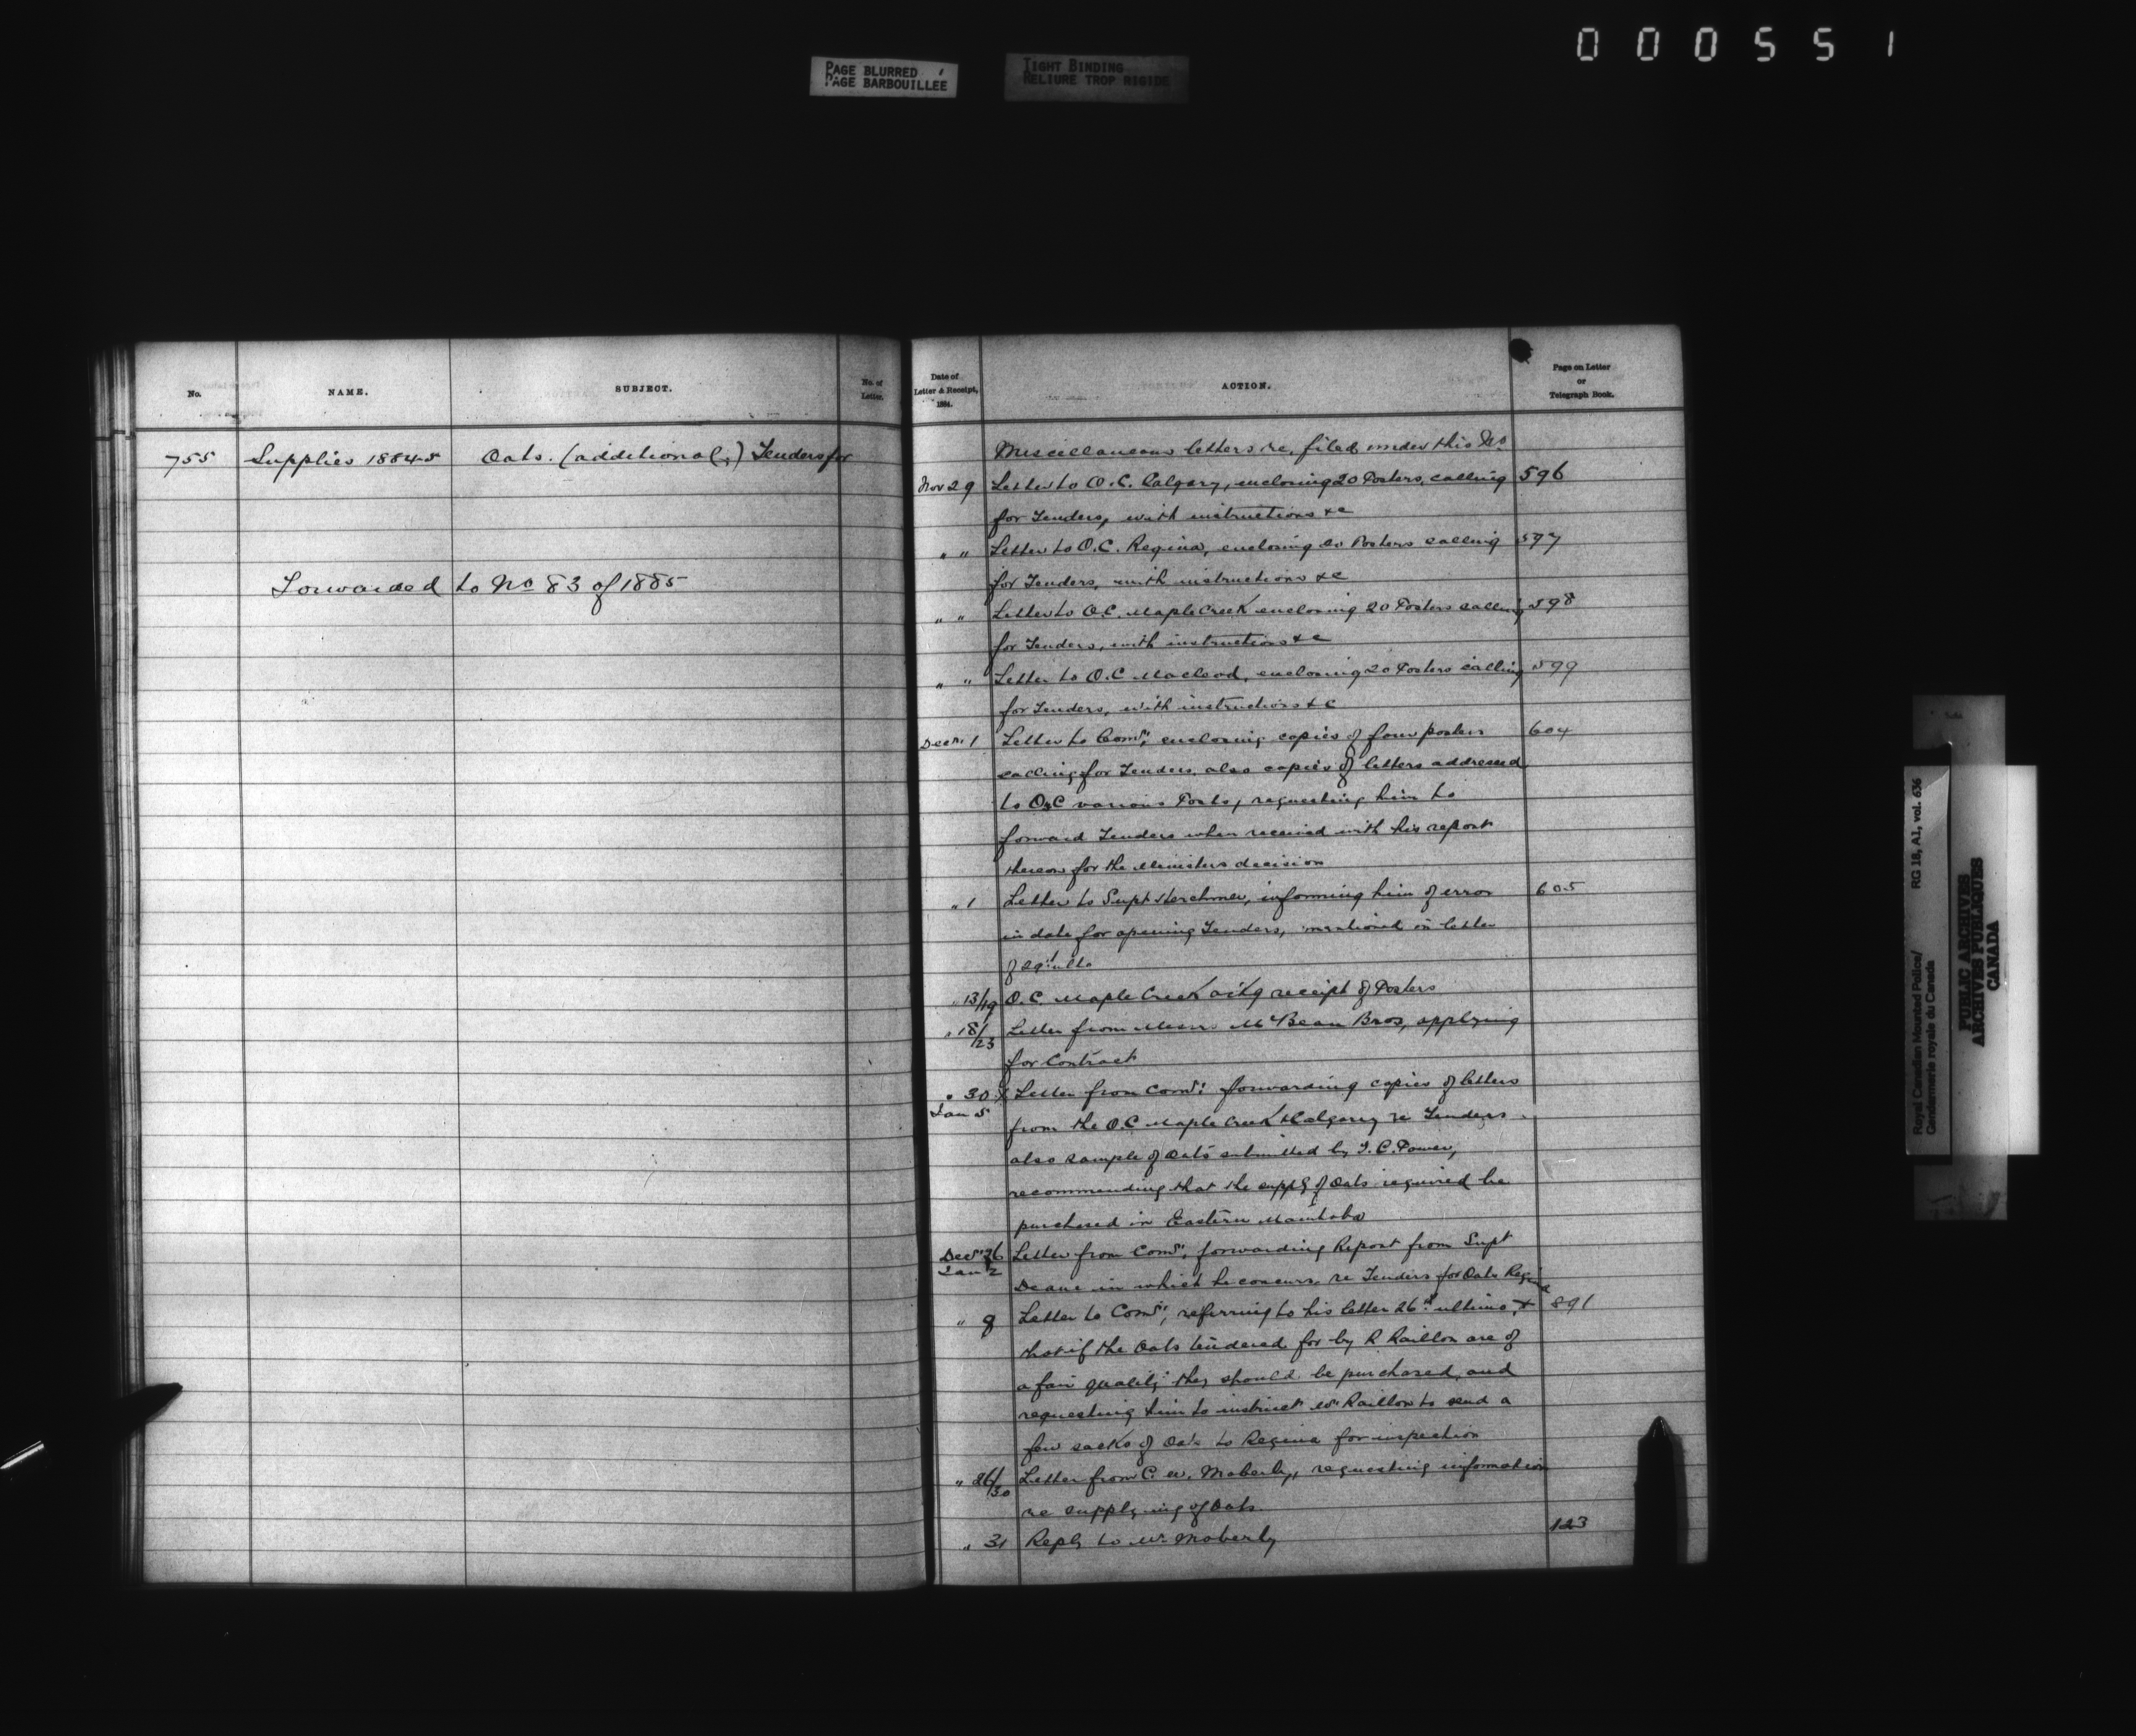 000551
PAGE BLURRED
PAGE BARBOUILLEE
TIGHT BINDING
RELIURE TROP RIGIDE
No.
NAME.
SUBJECT.
No. of
Letter.
755 Supplies 1884-5 Oats. (additional;) Tenders for
Forwarded to No 83 of 1885
Date of
Letter & Receipt,
1884.
ACTION.
Page on Letter
or
Telegraph Book.
Miscellaneous letters re, filed under this No.
Nov 29 Letter to O.C. Calgary, enclosing 20 Posters, calling 596
for Tenders, with instructions &c
" " Letter to O.C. Regina, enclosing 20 Posters calling 597
for Tenders, with instructions &c
" " Letter to O.C. Maple Creek enclosing 20 Posters calling 598
for Tenders, with instructions &c
" " Letter to O.C Macleod, enclosing 20 Posters calling 599
for Tenders, with instructions &c
Decr. 1 Letter to Comr, enclosing copies of four posters 604
calling for Tenders, also copies of letters addressed
to O.C various Posts, requesting him to
forward Tenders when received with his report
thereon for the Ministers decision
" 1 Letter to Supt Herchmer, informing him of error 605
in date for opening Tenders, mentioned in letter
of 29th ulto
" 13/19 O.C. Maple Creek ackg receipt of Posters
" 18/23 Letter from Messrs McBean Bros, applying
for Contract
" 30 Letter from Comr: forwarding copies of letters
Jan 5
from the O.C Maple Creek & Calgary re Tenders.
also sample of Oats submitted by I. G. Power,
recommending that the supply of Oats required be
purchased in Eastern Manitoba
Decr 26 Letter from Comr, forwarding Report from Supt
Jan 2
Deane in which he concurs, re Tenders for Oats Regina
" 8 Letter to Comr, referring to his letter 26th ultimo, & 891
that if the Oats tendered for by R Raillon are of
a fair quality they should be purchased, and
requesting him to instruct Mr Raillon to send a
few sacks of Oats to Regina for inspection
" 26/30 Letter from C. W. Moberly, requesting information
re supplying of Oats.
" 31 Reply to Mr Moberly 123
Royal Canadian Mounted Police/ RG 18, A1, vol. 636
Gendarmerie royale du Canada
PUBLIC ARCHIVES
ARCHIVES PUBLIQUES
CANADA